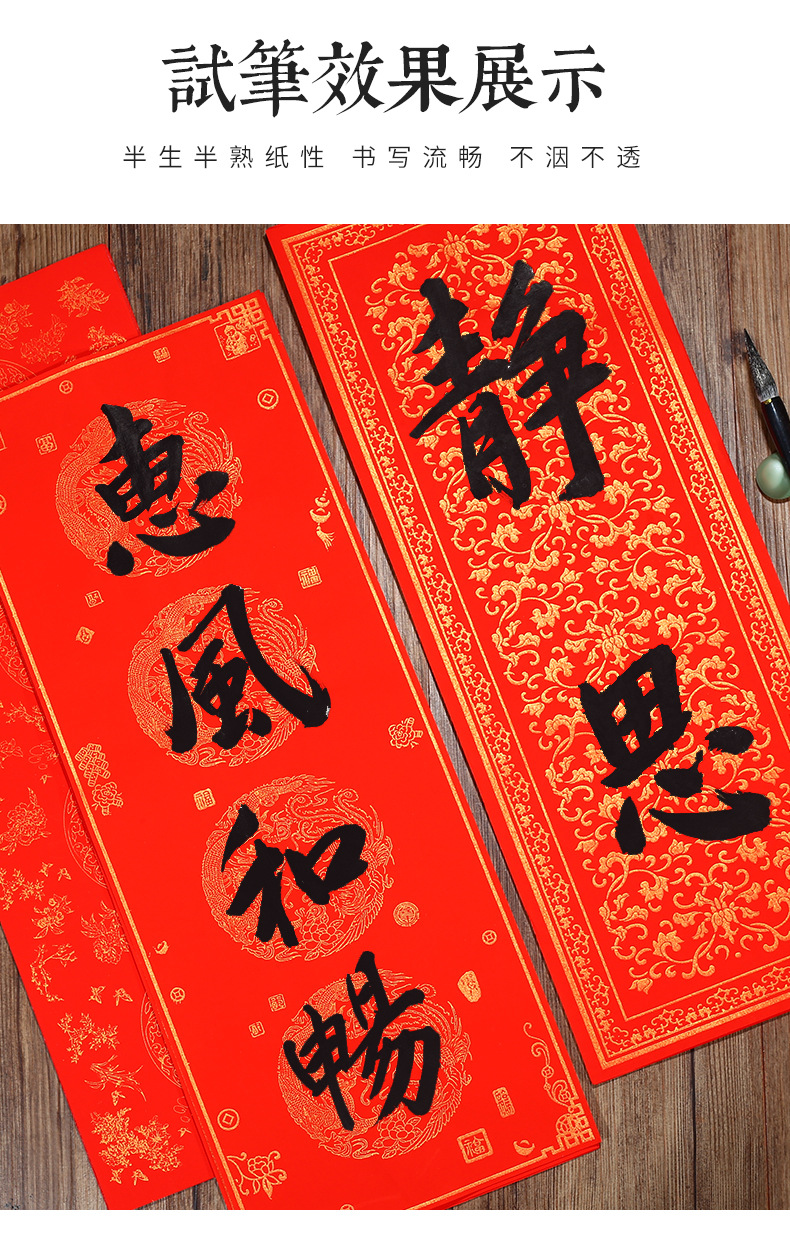 試筆效果展示
半生半熟纸性 书写流畅 不洇不透
惠風和暢
静思
福